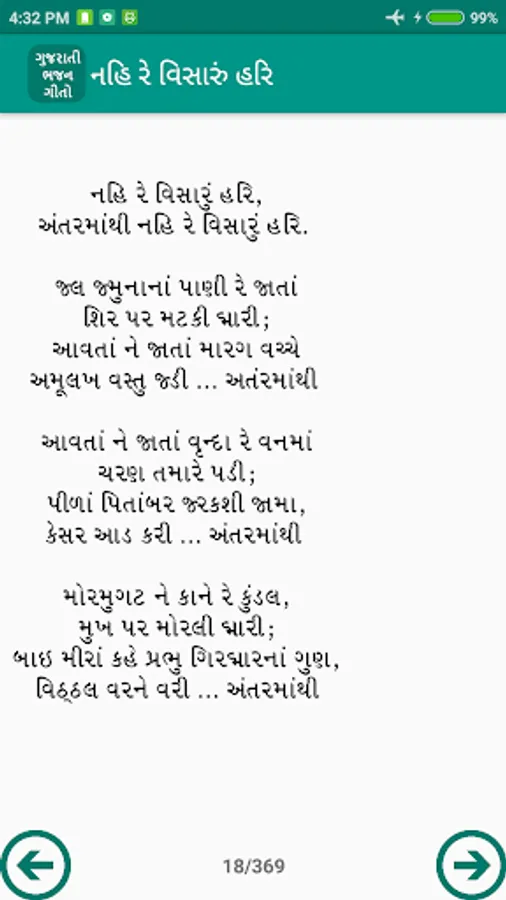 4:32 PM
99%
ગુજરાતી
ભજન
ગીતો
નહિ રે વિસારું હરિ
નહિ રે વિસારું હરિ,
અંતરમાંથી નહિ રે વિસારું હરિ.
જ્લ જ્મુનાનાં પાણી રે જાતાં
શિર પર મટકી ધ્રારી;
આવતાં ને જાતાં મારગ વચ્ચે
અમૂલખ વસ્તુ જ્ડી ... અતંરમાંથી
આવતાં ને જાતાં વૃન્દા રે વનમાં
ચરણ તમારે પડી;
પીળાં પિતાંબર જ્રકશી જામા,
કેસર આડ કરી ... અંતરમાંથી
મોરમુગટ ને કાને રે કુંડલ,
મુખ પર મોરલી ધ્રારી;
બાઇ મીરાં કહે પ્રભુ ગિરધ્રારનાં ગુણ,
વિઠ્ઠલ વરને વરી ... અંતરમાંથી
18/369